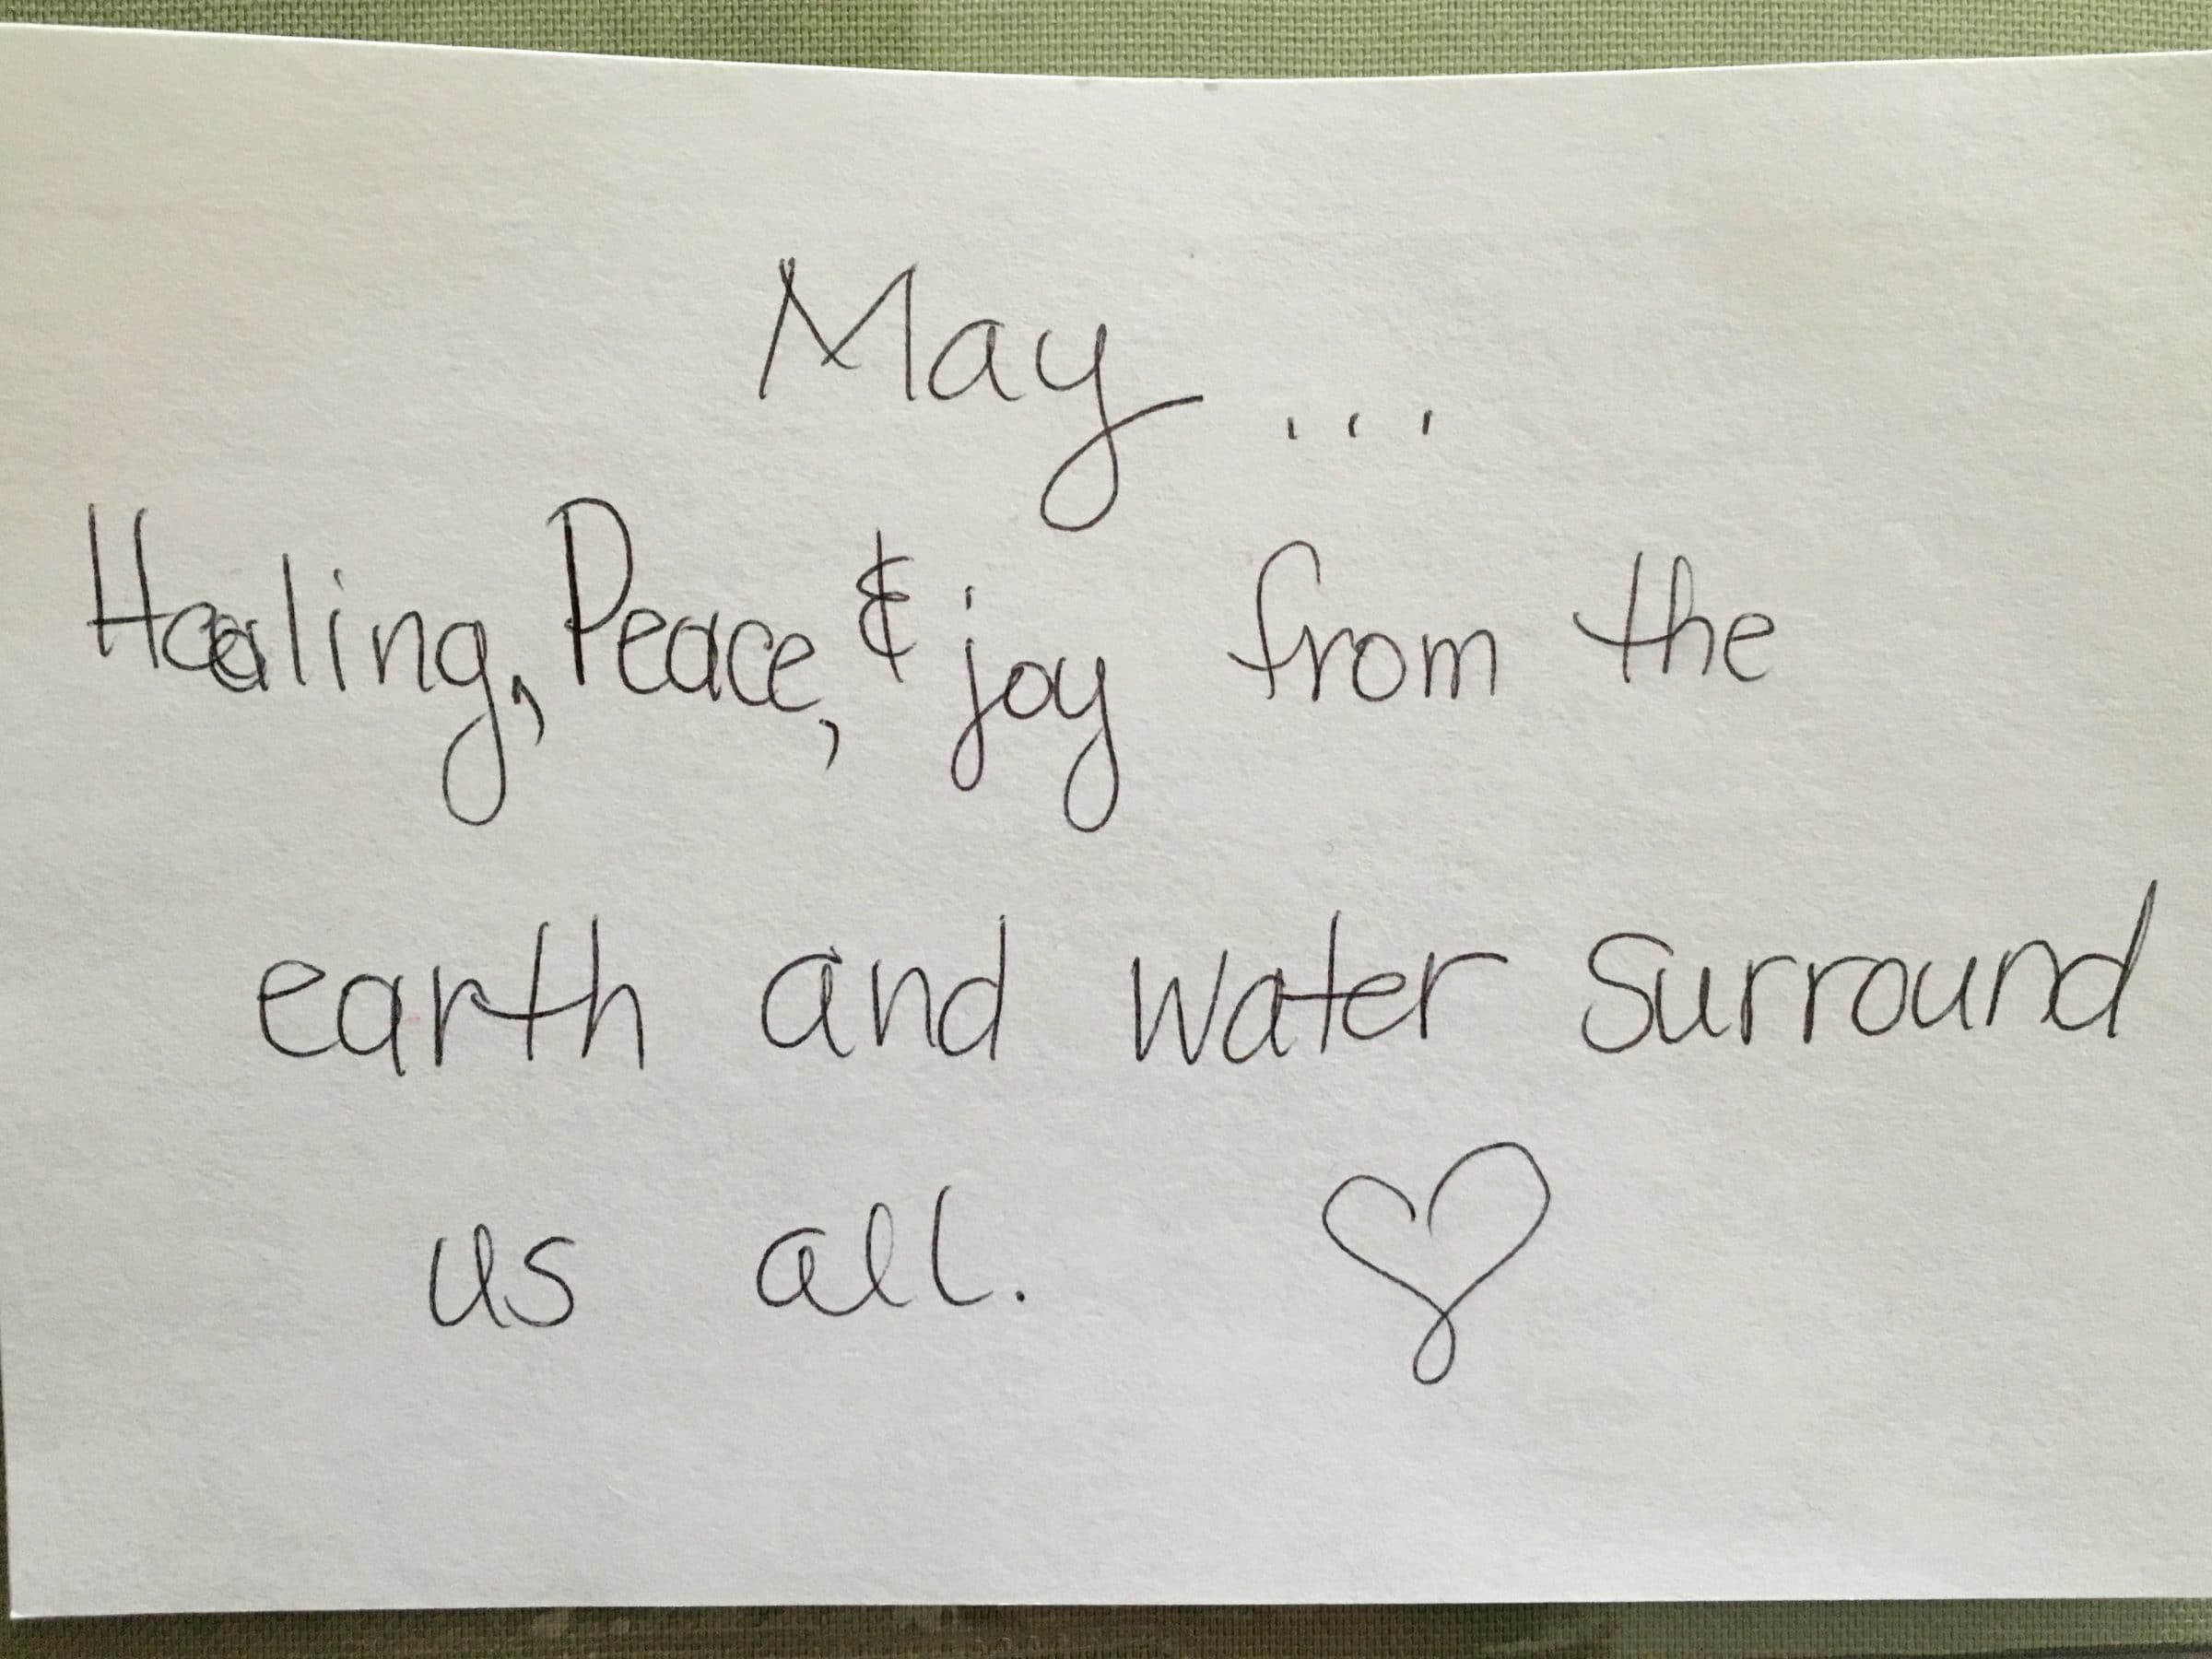 May...
Healing, Peace, & joy from the
earth and water surround
us all. ♡